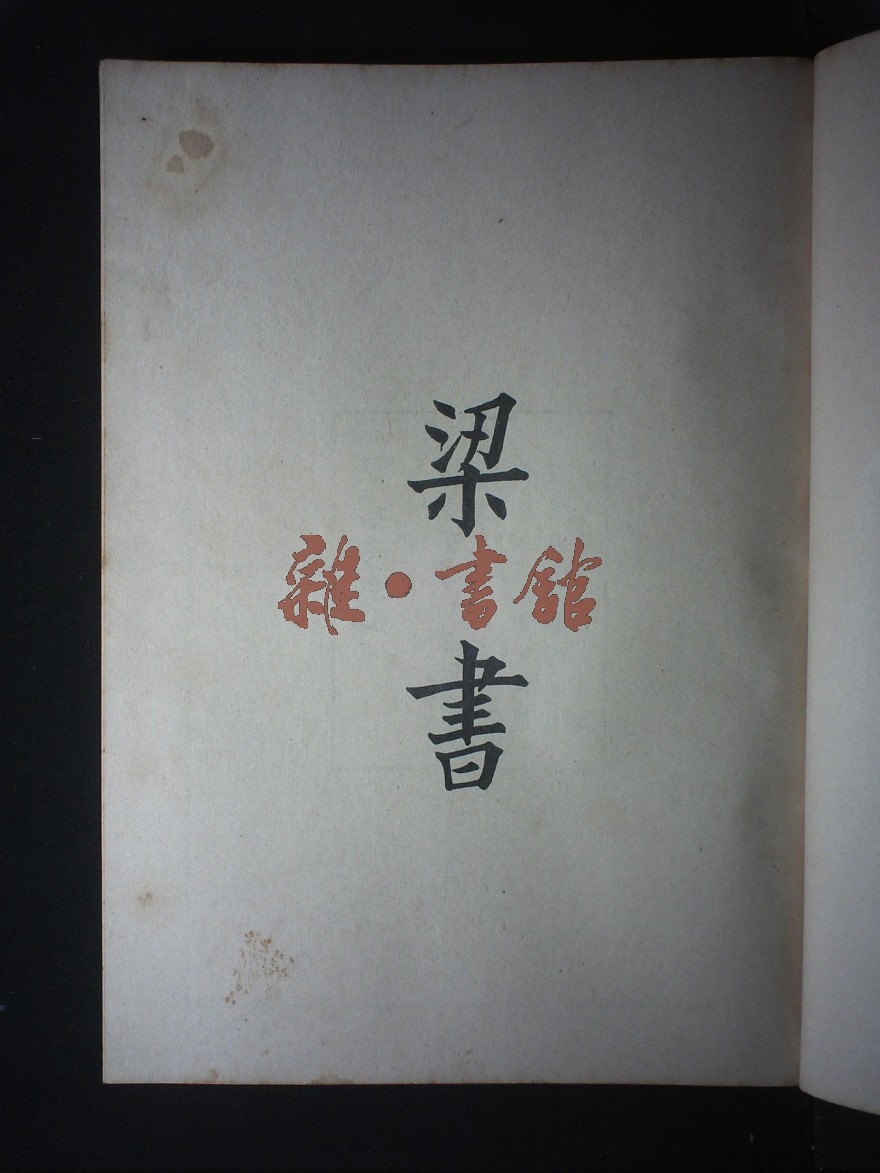 梁書
雜·書館